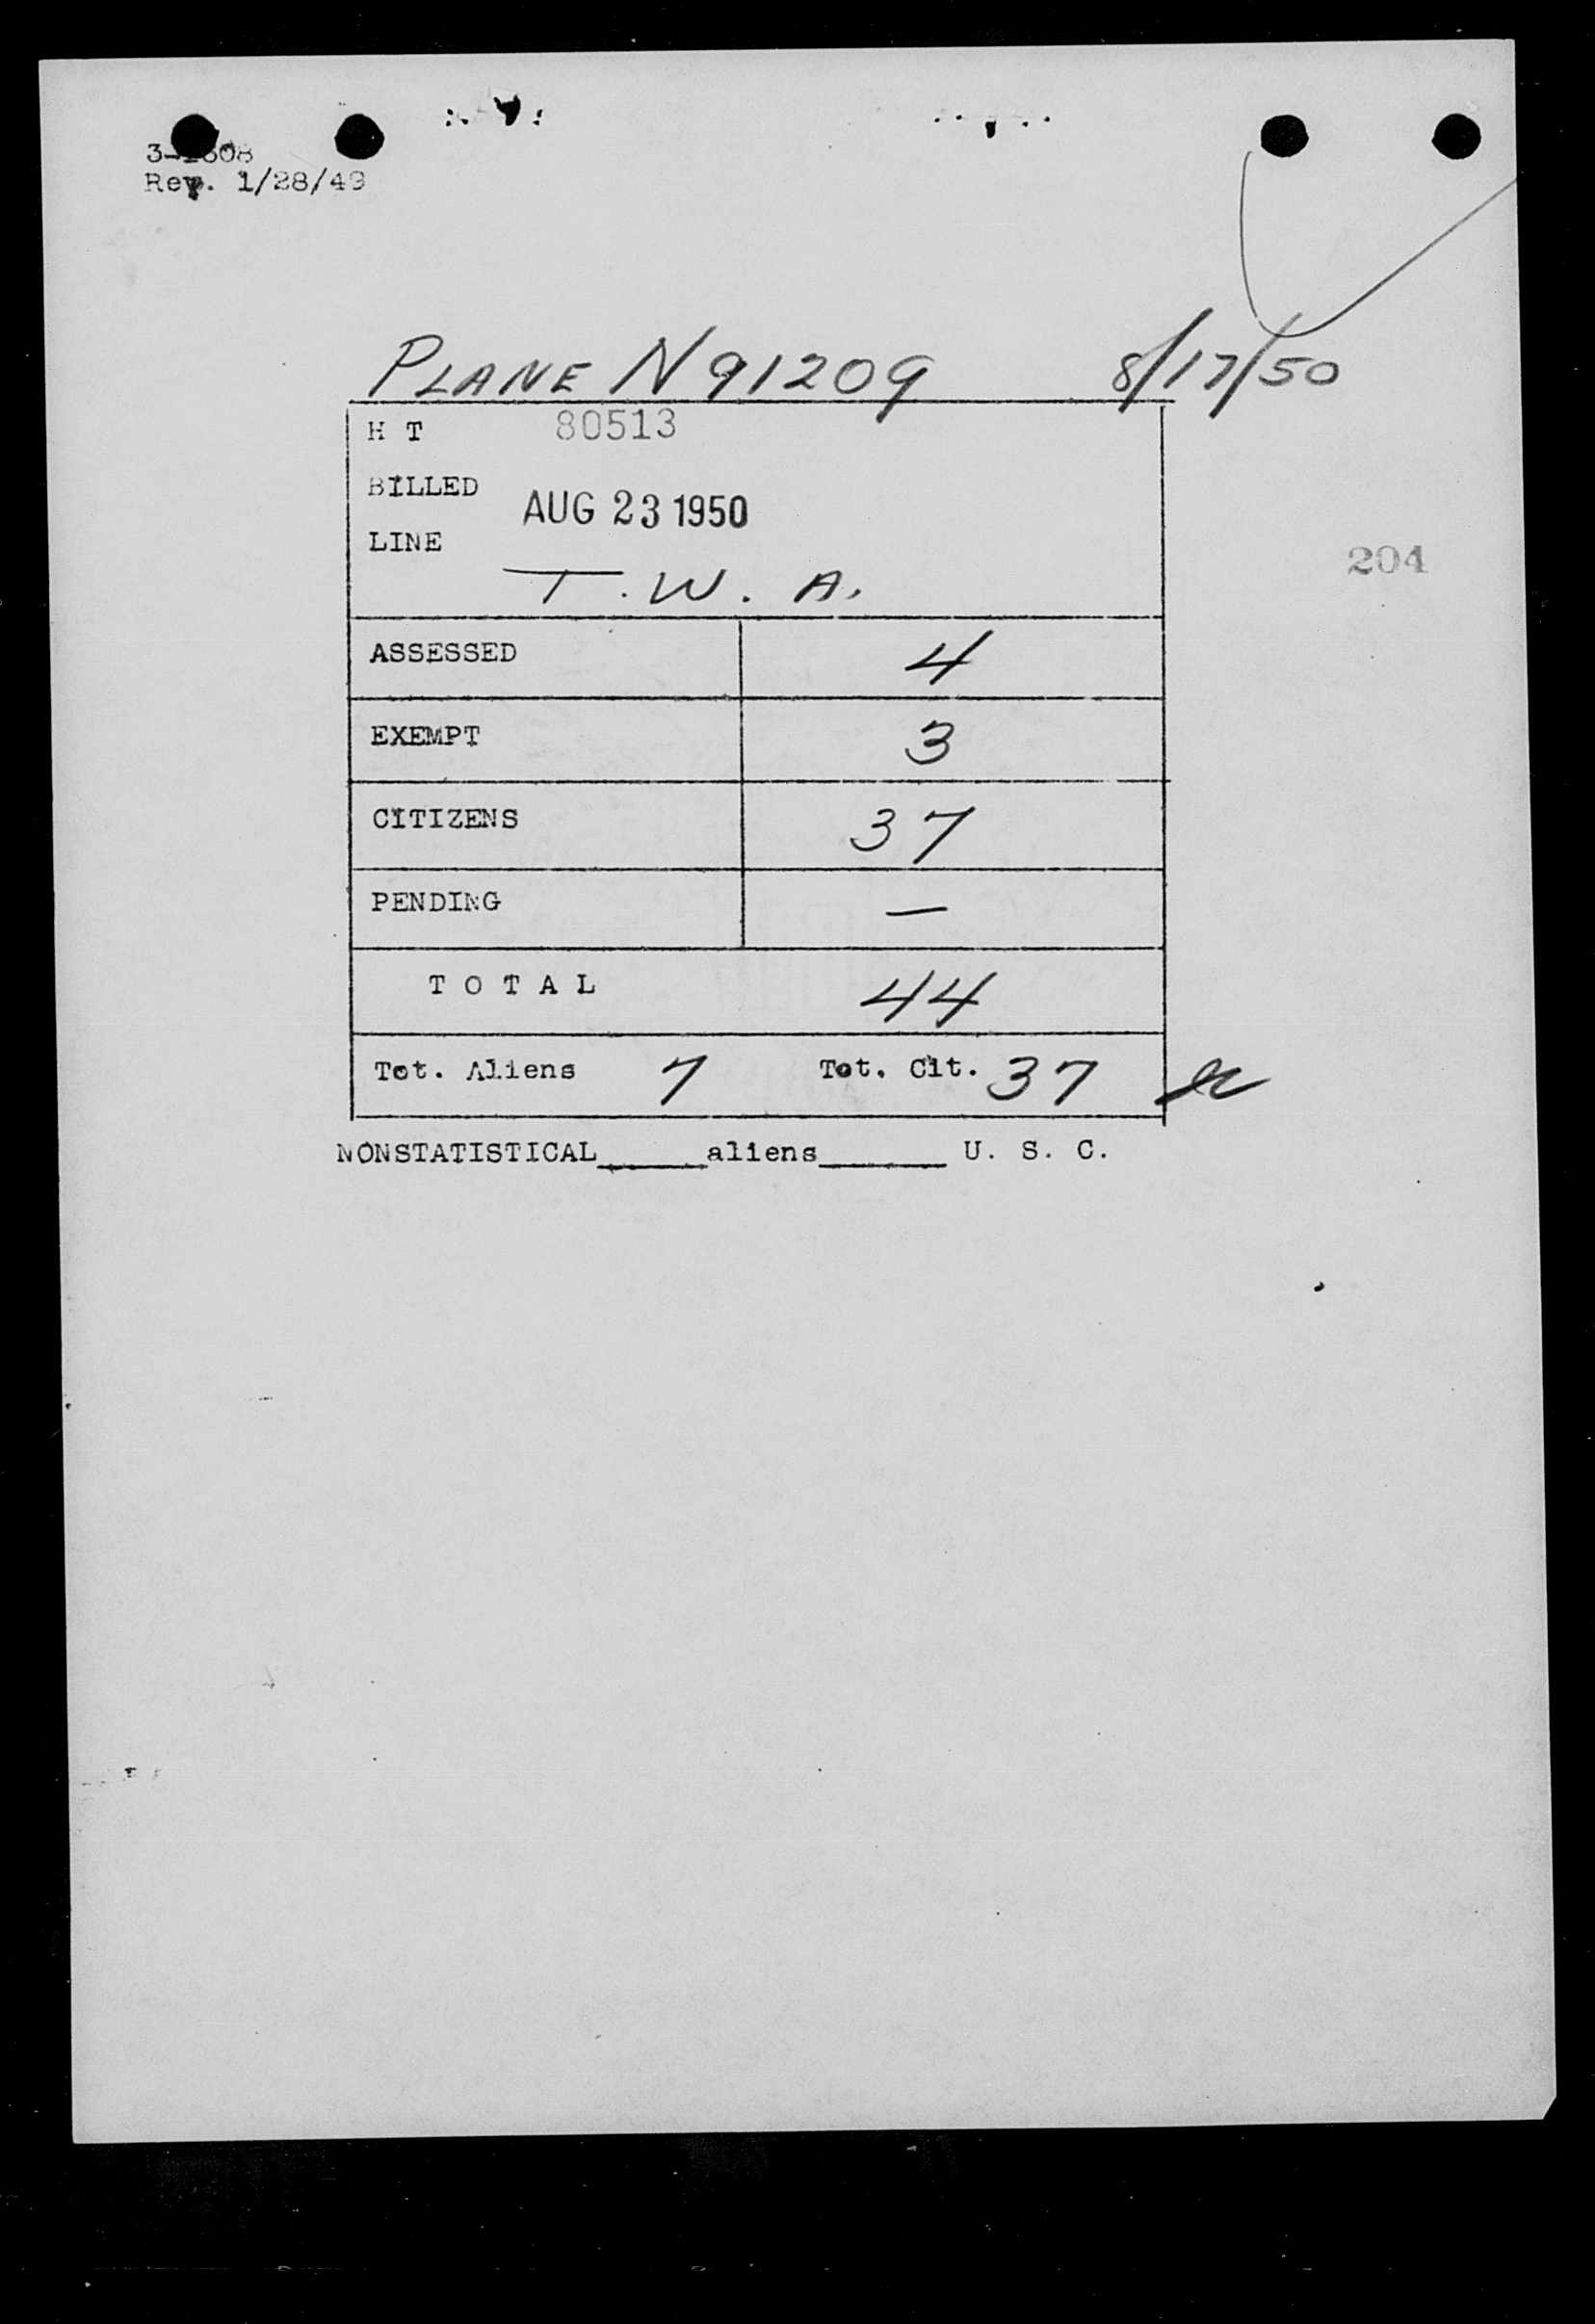 Rev. 1/28/49
PLANE N91209 8/17/50
H T 80513
BILLED AUG 23 1950
LINE T. W. A.
204
ASSESSED 4
EXEMPT 3
CITIZENS 37
PENDING —
T O T A L 44
Tot. Aliens 7 Tot. Cit. 37
NONSTATISTICAL_____aliens______ U. S. C.